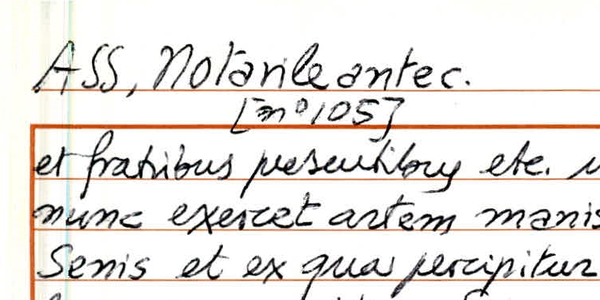 ASS, Notarile antec.
[nº 105]
et fratribus presentibus etc.
nunc exercet artem manis
Senis et ex qua percipitur